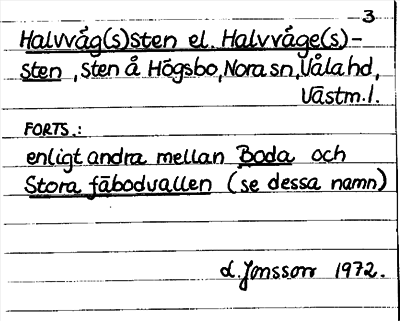 3
Halvvåg(s)sten el. Halvvåge(s)-
sten, sten å Högsbo, Nora sn, Våla hd,
Västm.l.
FORTS.:
enligt andra mellan Boda och
Stora fäbodvallen (se dessa namn)
L. Jonsson 1972.